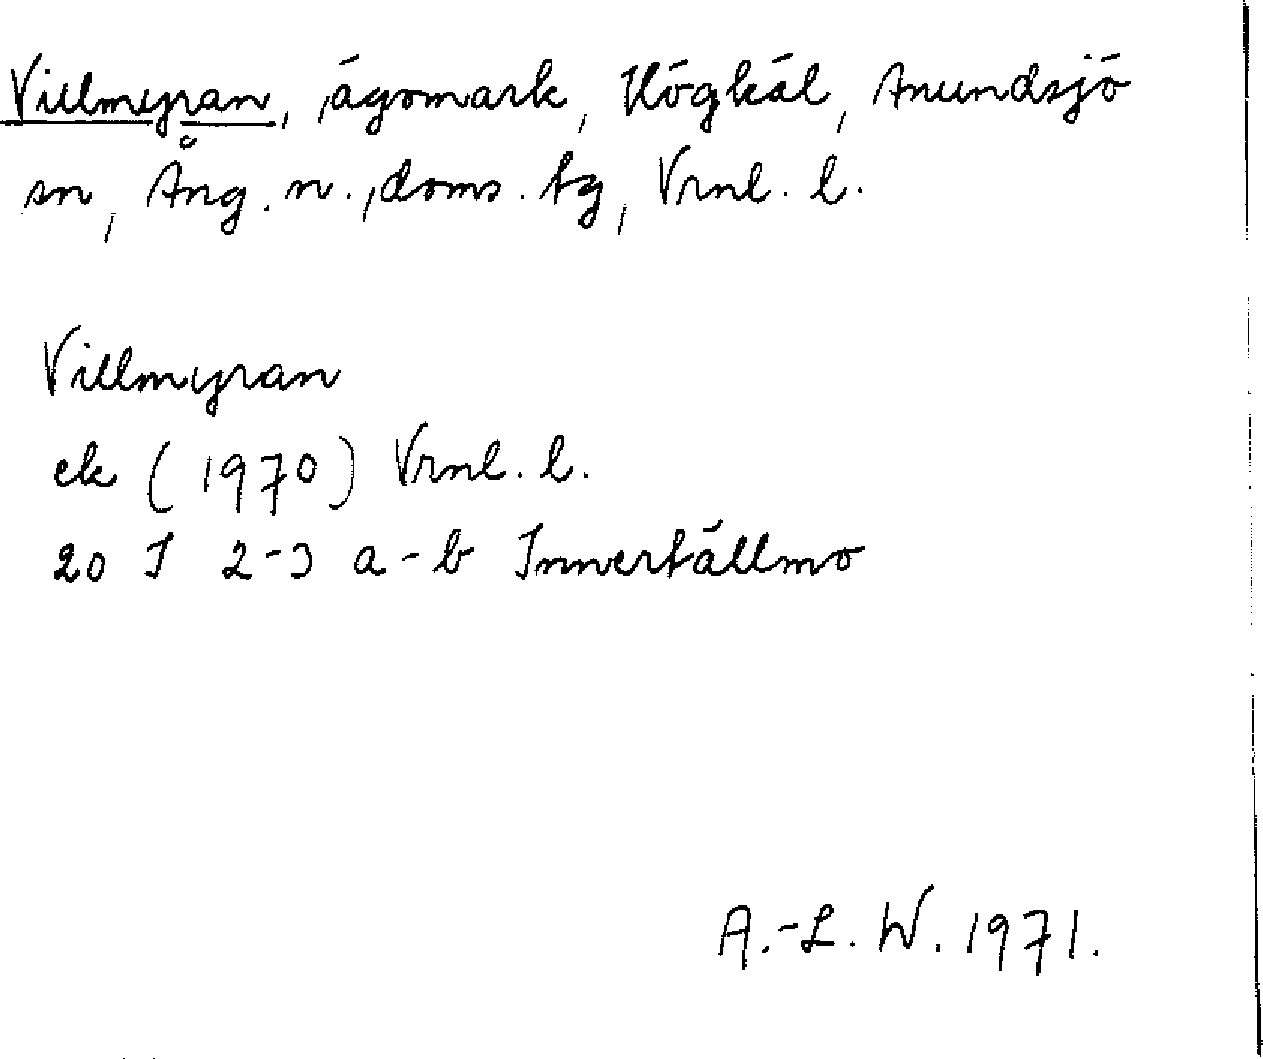 Villmyran, ägomark, Högkål, Anundsjö
sn, Ång. n., doms. tg, Vrnl. l.
Villmyran
ek (1970) Vrnl. l.
20 I 2-3 a-b Innertällmo
A.-L. W. 1971.